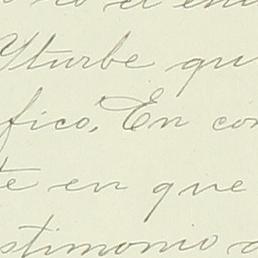 Yturbe qu
fico. En con
te en que
stimonio d